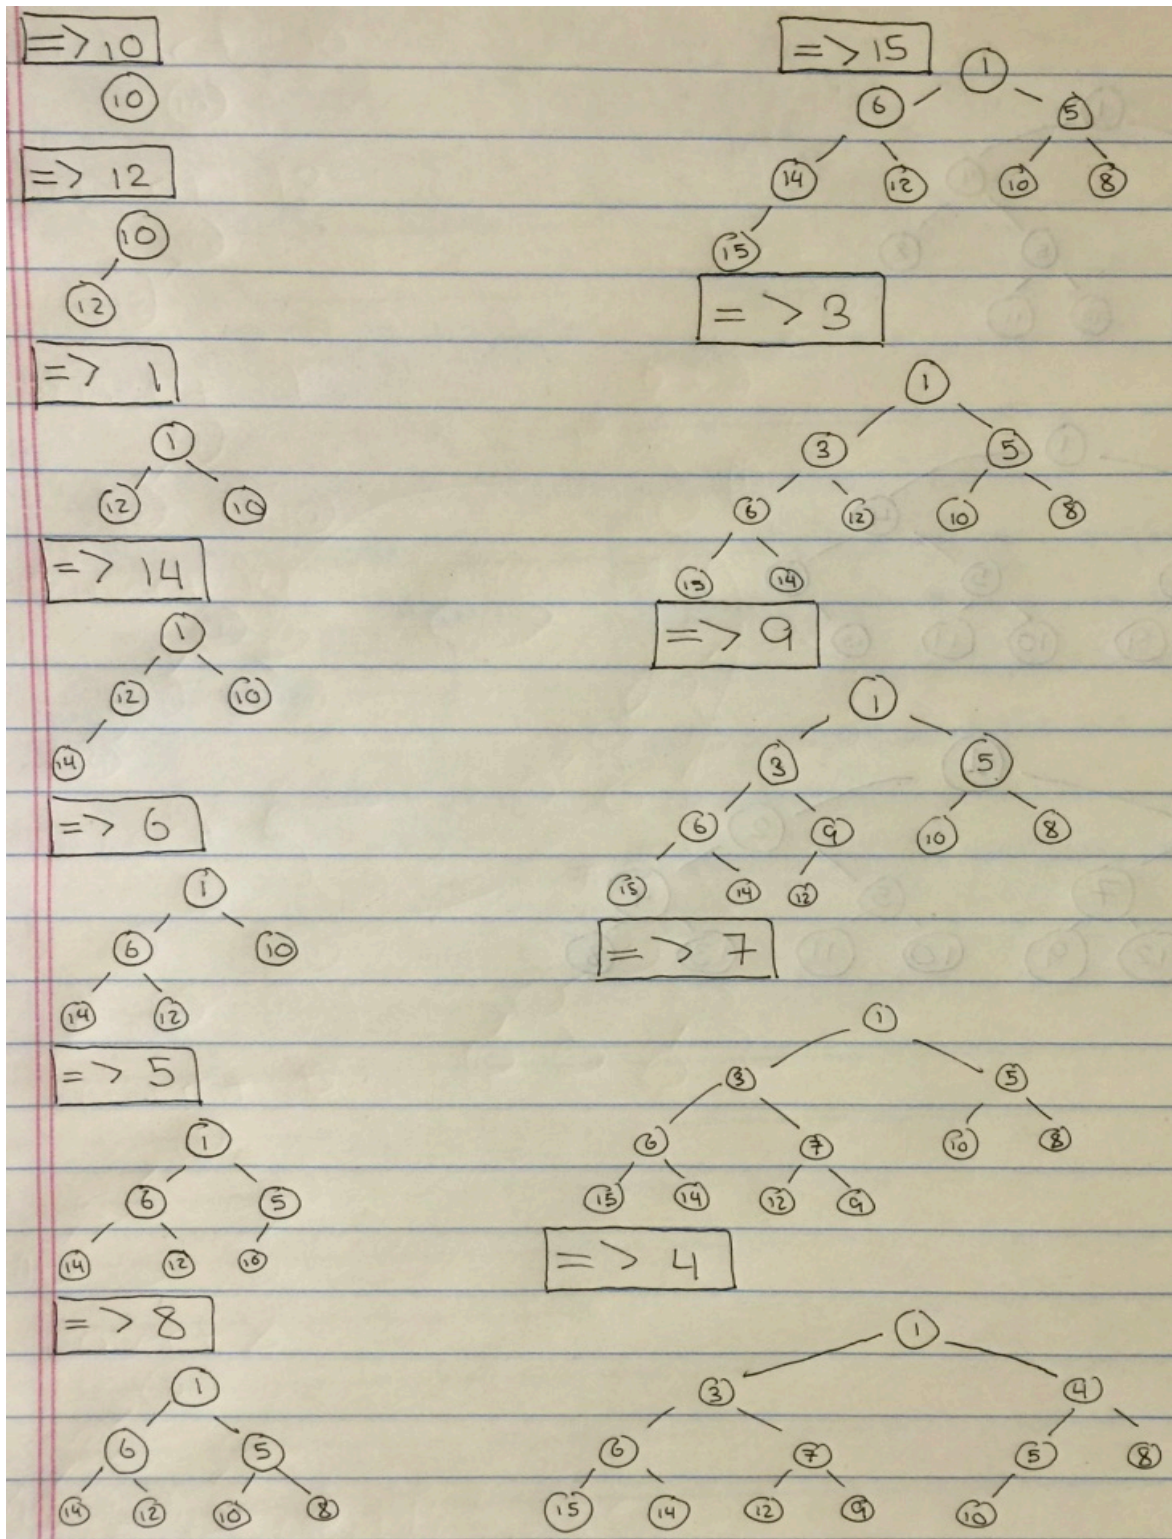 => 10
10
=> 12
10
12
=> 1
1
12 10
=> 14
1
12 10
14
=> 6
1
6 10
14 12
=> 5
1
6 5
14 12 10
=> 8
1
6 5
14 12 10 8
=> 15
1
6 5
14 12 10 8
15
=> 3
1
3 5
6 12 10 8
15 14
=> 9
1
3 5
6 9 10 8
15 14 12
=> 7
1
3 5
6 7 10 8
15 14 12 9
=> 4
1
3 4
6 7 5 8
15 14 12 9 10